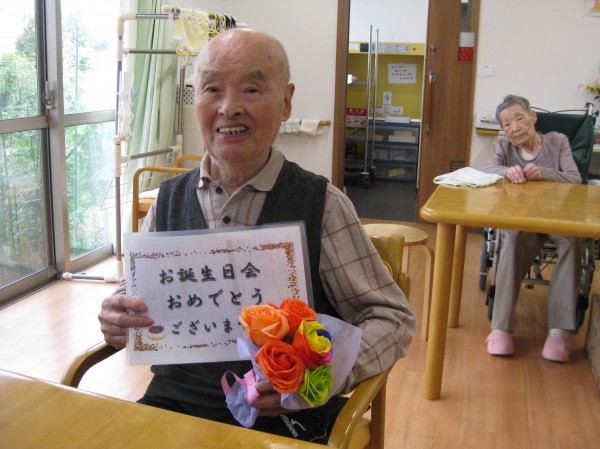 お誕生日会
おめでとう
ございま